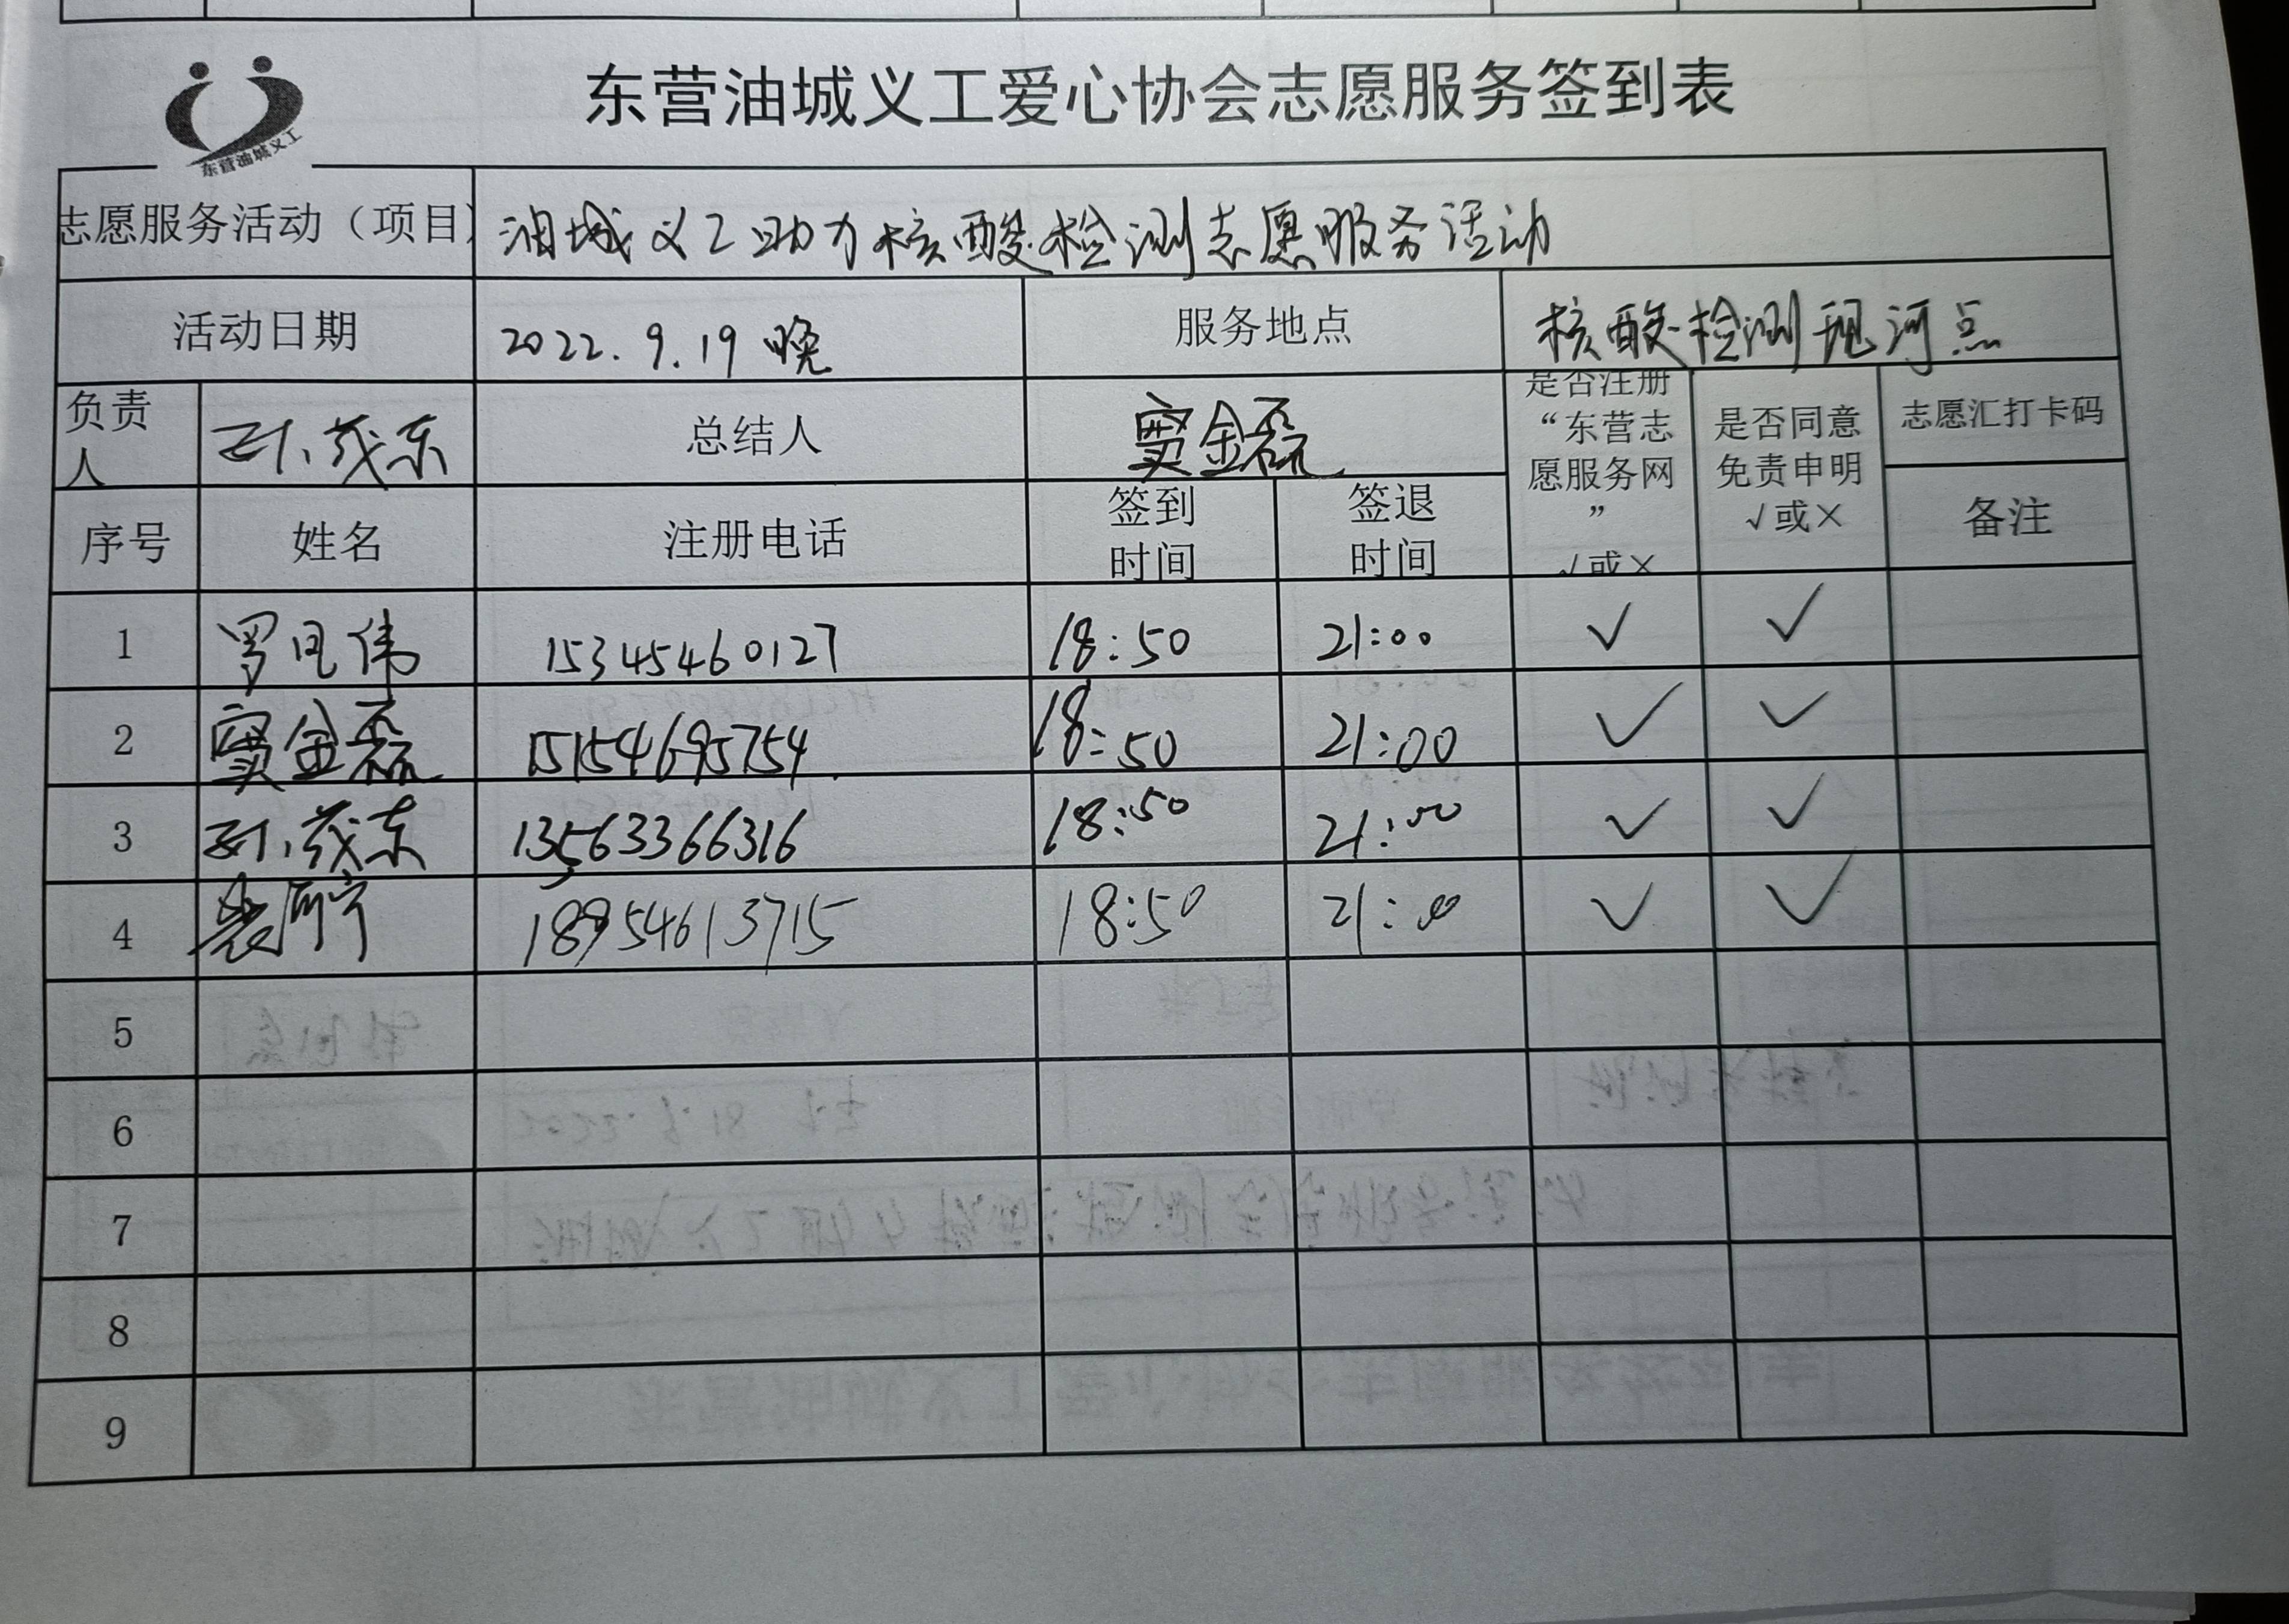 东营油城义工爱心协会志愿服务签到表
东营油城义工
志愿服务活动（项目） 油城义工助力核酸检测志愿服务活动
活动日期 2022.9.19 晚 服务地点 核酸检测现河点
负责人 孙茂东 总结人 窦金磊 是否注册“东营志愿服务网” √或× 是否同意免责申明 √或× 志愿汇打卡码
序号 姓名 注册电话 签到时间 签退时间 备注
1 罗伟 15345460127 18:50 21:00 √ √
2 窦金磊 15154695754 18:50 21:00 √ √
3 孙茂东 13563366316 18:50 21:00 √ √
4 18954613715 18:50 21:00 √ √
5
6
7
8
9